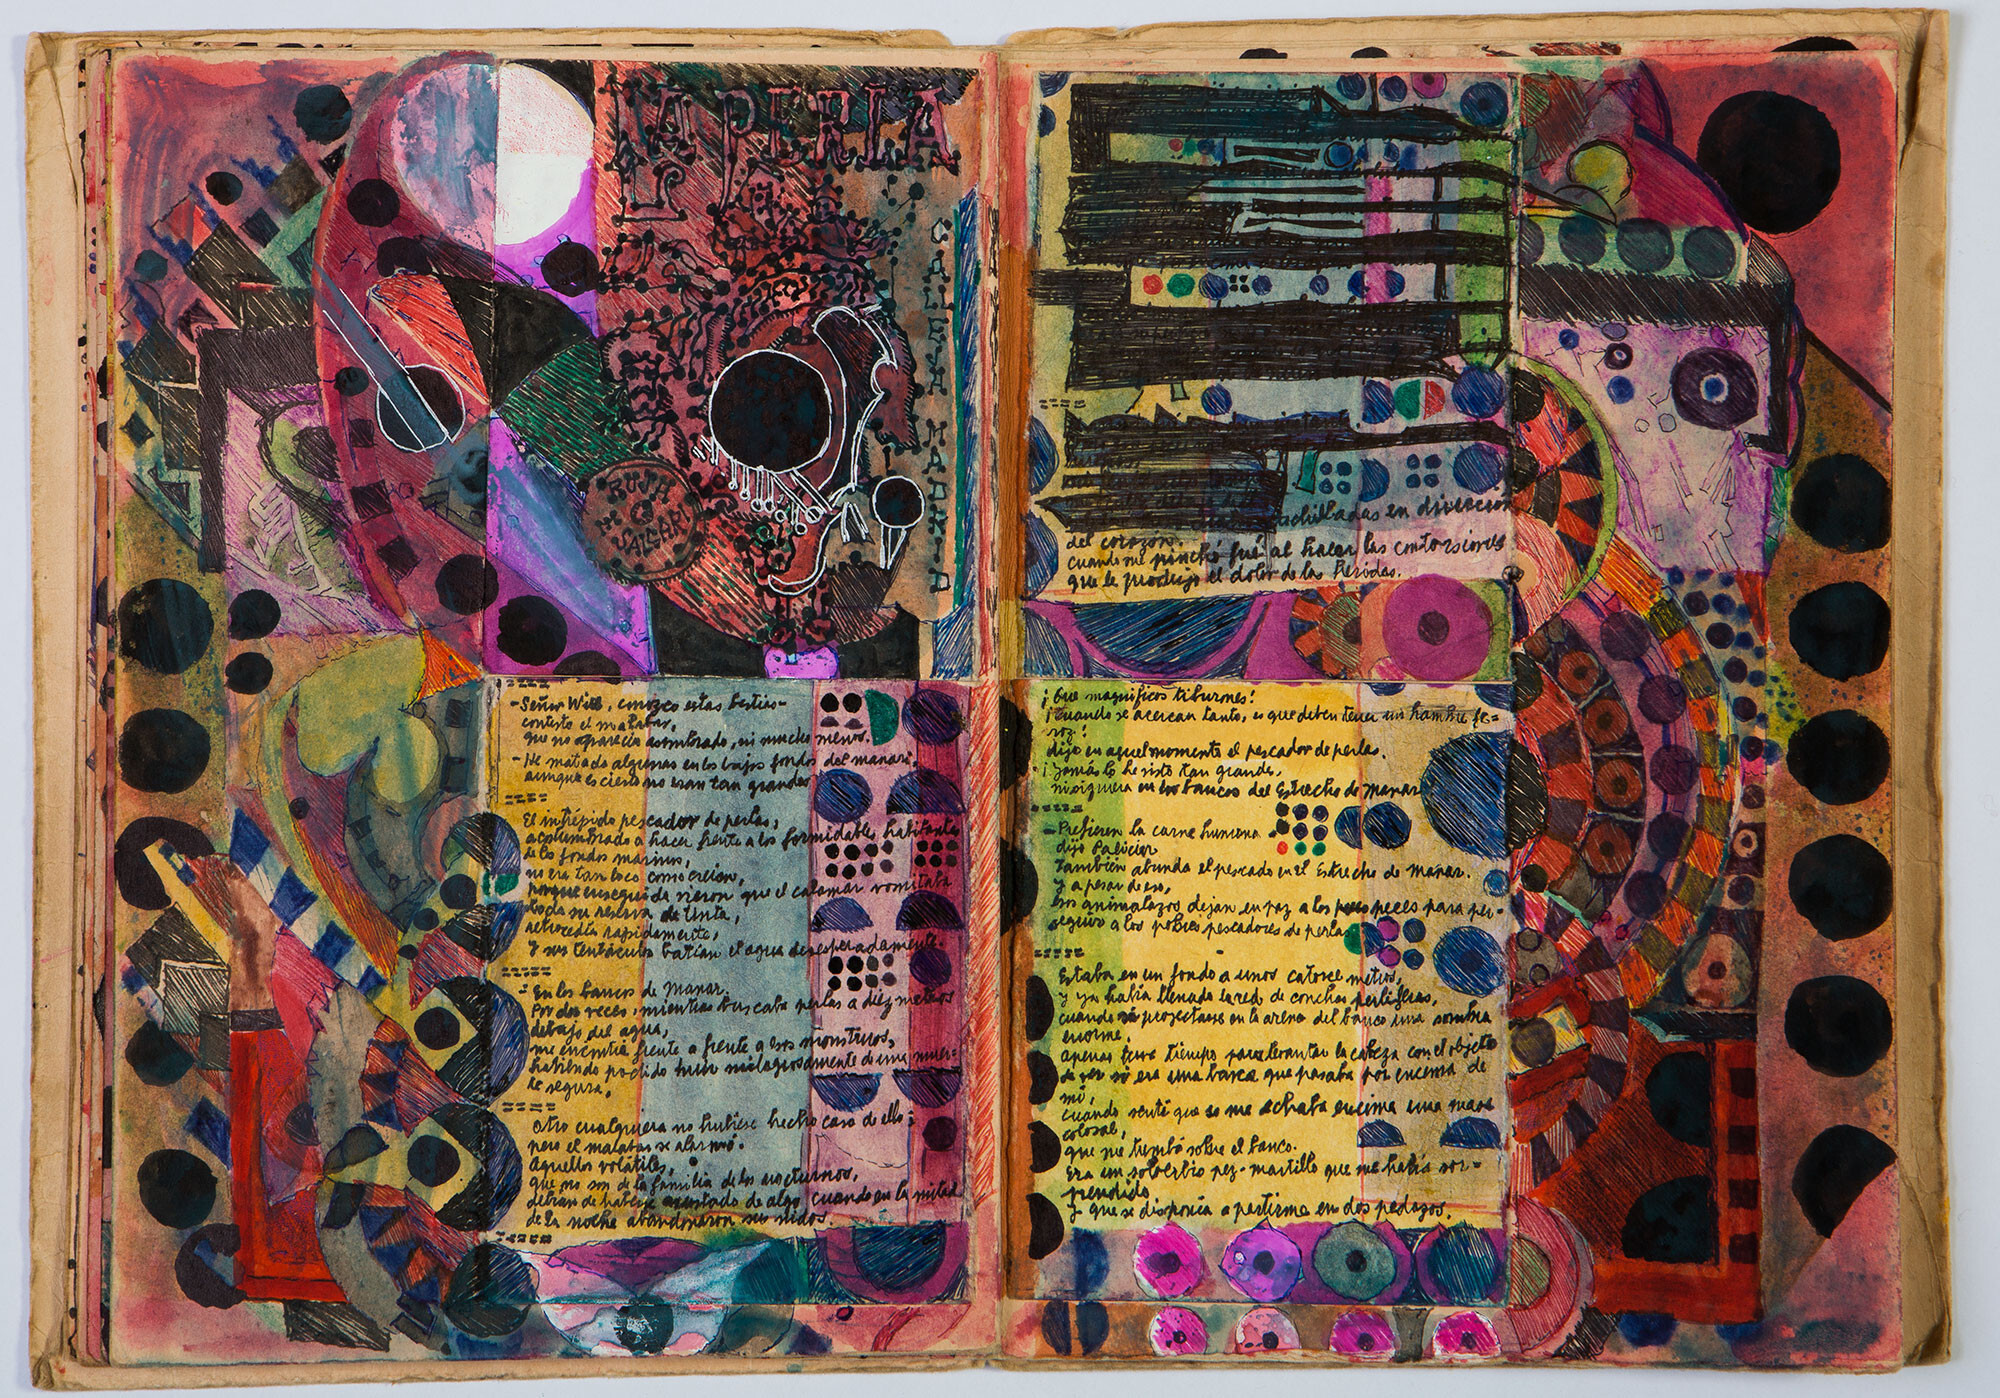 LA PERLA
CALLEJA MADRID
RUTH
- Señor Will, conozco estas bestias-
contestó el malabar,
que no aparecía asombrado, ni mucho menos.
- He matado algunas en los bajos fondos del manar,
aunque es cierto no eran tan grandes
El intrépido pescador de perlas,
acostumbrado a hacer frente a los formidables habitantes
de los fondos marinos,
no era tan loco como creían,
porque enseguida vieron que el calamar vomitaba
toda su reserva de tinta,
retrocedía rapidamente,
y sus tentáculos batían el agua desesperadamente.
- En los bancos de Manar.
Por dos veces, mientras buscaba perlas a diez metros
debajo del agua,
me encontré frente a frente a esos monstruos,
habiendo podido huir milagrosamente de una muer-
te segura.
Otro cualquiera no hubiese hecho caso de ello;
pero el malabar se alarmó.
Aquellos volátiles,
que no son de la familia de los nocturnos,
debían de haberse asustado de algo cuando en la mitad
de la noche abandonaron sus nidos.
cuchilladas en dirección
del corazón.
cuando me pinchó fué al hacer las contorsiones
que le produjo el dolor de las heridas.
¡Que magníficos tiburones!
¡Cuando se acercan tanto, es que deben tener un hambre fe-
roz!
dijo en aquel momento el pescador de perlas.
¡Jamás lo he visto tan grande,
ni siquiera en los bancos del Estrecho de Manar
- Prefieren la carne humana
dijo Palicier
También abunda el pescado en el Estrecho de Manar.
y a pesar de eso,
los animalazos dejan en paz a los peces para per-
seguir a los pobres pescadores de perlas
Estaba en un fondo a unos catorce metros,
y ya había llenado la red de conchas perlíferas,
cuando se proyectase en la arena del banco una sombra
enorme.
Apenas tuve tiempo para levantar la cabeza con el objeto
de ver si era una barca que pasaba por encima de
mí,
cuando sentí que se me echaba encima una masa
colosal,
que me tumbó sobre el banco.
Era un soberbio pez-martillo que me había sor-
prendido
y que se disponía a partirme en dos pedazos.